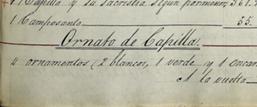 1 Capilla y su sacristia segun pormenor, 361.
1 Camposanto 55.
Ornato de Capilla.
4 ornamentos (2 blancos, 1 verde y 1 encar
A la vuelta